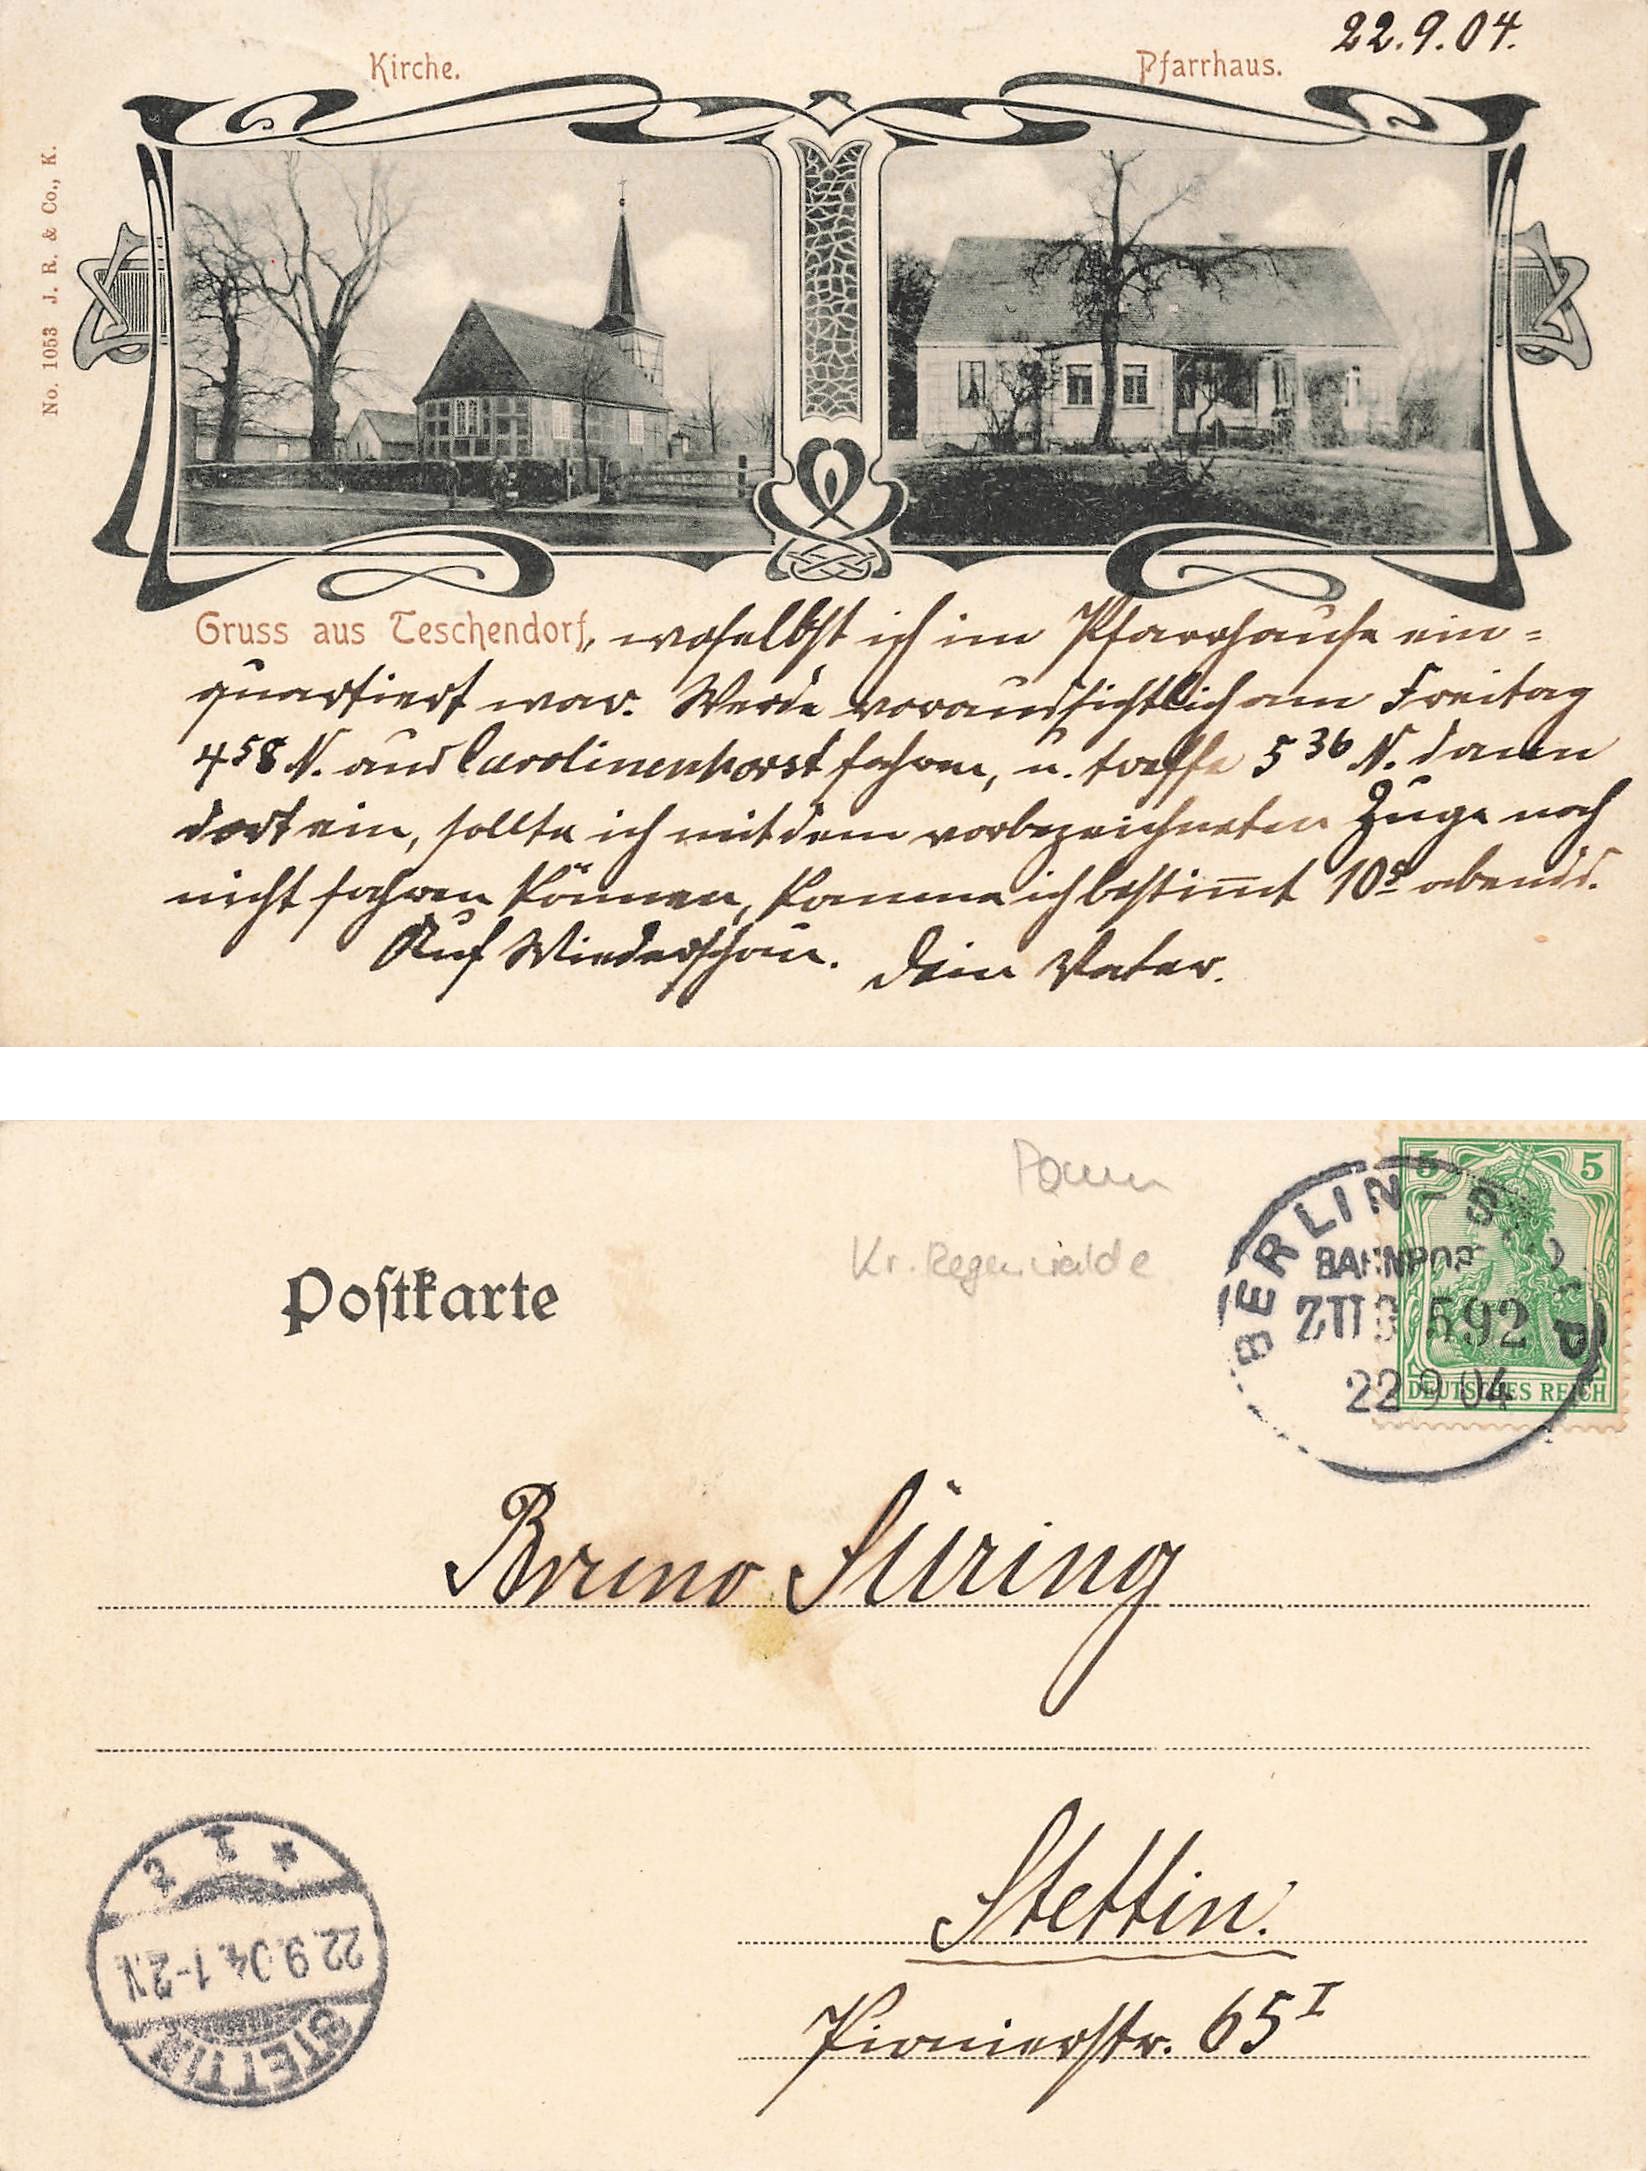 22.9.04.
Kirche.
Pfarrhaus.
No. 1053 J. R. & Co., K.
Gruss aus Teschendorf, woselbst ich im Pfarrhause ein=
quartiert war. Werde voraussichtlich am Freitag
4⁵⁸ N. aus Carolinenhorst fahren, u. treffe 5³⁶ N. dann
dort ein, sollte ich mit dem vorbezeichneten Zuge noch
nicht fahren können, komme ich bestimmt 10² abends.
Auf Wiederschau. Dein Vater.
Pomm
Kr. Regenwalde
Postkarte
5 5
DEUTSCHES REICH
BERLIN - S
BAHNPOS
ZUG 592
22 9 04
Bruno Süring
Stettin.
Pionierstr. 65 I
STETTIN
22.9.04.1-2N.
* 1 z